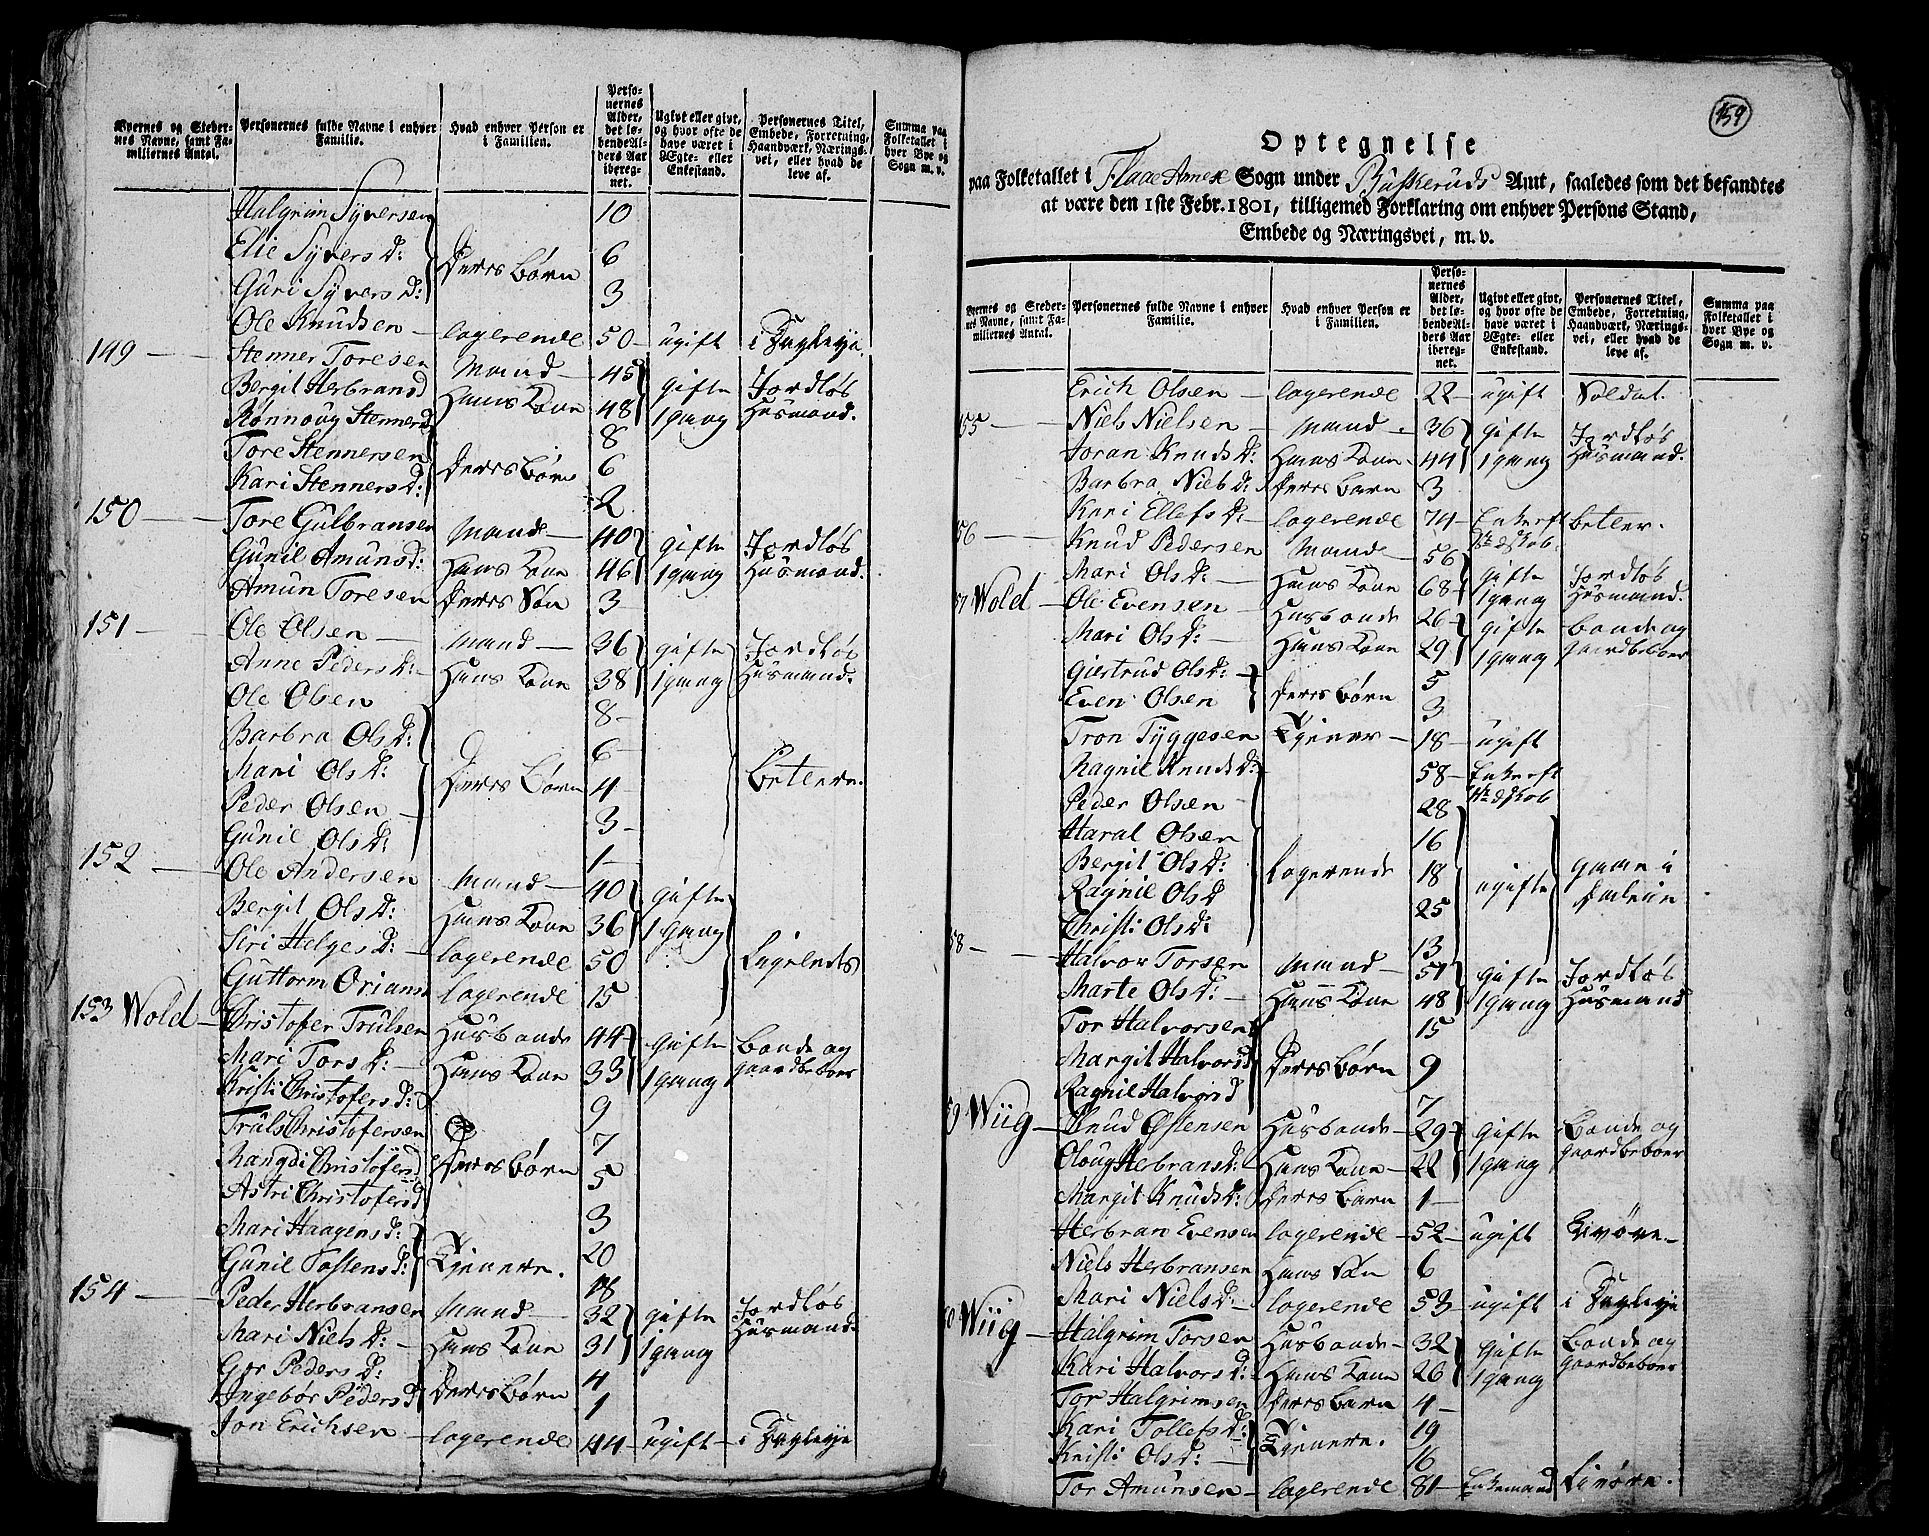 Byernes og Steder-
nes Navne, samt Fa-
miliernes Antal.
Personernes fulde Navne i enhver
Familie.
Hvad enhver Person er
i Familien.
Perso-
nernes
Alder,
det lø-
bende Al-
ders Aar
ibereg-
net.
Ugivt eller givt,
og hvor ofte de
have været i
Ægte- eller
Enkestand.
Personernes Titel,
Embede, Forretning,
Haandværk, Nærings-
vei, eller hvad de
leve af.
Summa paa
Folketallet i
hver Bye og
Sogn m. v.
Halgrim Syversen 10
Elie Syvers D: 6
Guri Syvers D: Deres Børn 3
Ole Knudsen logerende 50 ugift i Dagleye
149 Stenner Toresen Mand 45 gifte Jordløs
Bergit Herbransd Hans Kone 48 1 gang Husmand.
Rønnoug Stennersd 8
Tore Stennersen Deres Børn 6
Kari Stenners D: 2
150 Tore Gulbransen Mand 40 gifte Jordløs
Gunil Amunsd: Hans Kone 46 1 gang Husmand.
Amun Toresen Deres Søn 3
151 Ole Olsen Mand 36 gifte Jordløs
Anne Peders D: Hans Kone 38 1 gang Husmand.
Ole Olsen 8
Barbra Ols D: 6
Mari Ols D: Deres Børn 4 Betlere.
Peder Olsen 3
Gunil Ols D: 1
152 Ole Andersen Mand 40 gifte
Bergit Ols D: Hans Kone 36 1 gang
Siri Helges D: logerende 50 Ligeledes
Guttorm Orians logerende 15
153 Wold Christofer Trulsen Husbonde 44 gifte Bonde og
Mari Tors D: Hans Kone 33 1 gang gaardbeboer
Kristi Christofers D: 9
Truls Christofersen 7
Mangdi Christofersd Deres Børn 5
Astri Christofersd 3
Mari Haagens D: 20
Gunil Tostens D: Tjenere. 18
154 Peder Herbransen Mand 32 gifte Jordløs
Mari Niels D: Hans Kone 31 1 gang Husmand.
Gor Peders D: 4
Ingebør Peders D Deres Børn 1
Jon Erichsen logerende 44 ugift i Dagleye
159
Optegnelse
paa Folketallet i Flaae Annex Sogn under Buskeruds Amt, saaledes som det befandtes
at være den 1ste Febr. 1801, tilligemed Forklaring om enhver Persons Stand,
Embede og Næringsvei, m. v.
Byernes og Steder-
nes Navne, samt Fa-
miliernes Antal.
Personernes fulde Navne i enhver
Familie.
Hvad enhver Person er
i Familien.
Perso-
nernes
Alder,
det lø-
bende Al-
ders Aar
ibereg-
net.
Ugivt eller givt,
og hvor ofte de
have været i
Ægte- eller
Enkestand.
Personernes Titel,
Embede, Forretning,
Haandværk, Nærings-
vei, eller hvad de
leve af.
Summa paa
Folketallet i
hver Bye og
Sogn m. v.
Erich Olsen logerende 22 ugift Soldat.
55 Niels Nielsen Mand 36 gifte Jordløs
Joran Knuds D: Hans Kone 44 1 gang Husmand.
Barbra Niels D: Deres Barn 3
Kari Ellefs D: logerende 74 Enke eft Betler.
56 Knud Pedersen Mand 56 gifte Jordløs
Mari Ols D: Hans Kone 68 1 gang Husmand.
57 Wold Ole Evensen Husbonde 26 gifte Bonde og
Mari Ols D: Hans Kone 29 1 gang gaardbeboer
Giertrud Ols D: 5
Even Olsen Deres Børn 3
Tron Tyggesen Tjener 18 ugift
Ragnil Knuds D: 58 Enke eft
Peder Olsen 28
Haral Olsen 16
Bergit Ols D: logerende 18 ugifte gaae i
Ragnil Ols D 25
Christi Ols D: 13
58 Halvor Torsen Mand 57 gifte Jordløs
Marte Ols D: Hans Kone 48 1 gang Husmand
Tor Halvorsen 15
Margit Halvorsd Deres Børn 9
Ragnil Halvorsd 7
59 Wiig Knud Østensen Husbonde 29 gifte Bonde og
Oloug Hebransd: Hans Kone 22 1 gang gaardbeboer
Margit Knuds D: Deres Barn 1
Herbran Evensen logerende 52 ugift
Niels Herbransen Hans Søn 6
Mari Niels D: logerende 53 ugift i Dagleye
60 Wiig Halgrim Torsen Husbonde 32 gifte Bonde og
Kari Halvors D: Hans Kone 26 1 gang gaardbeboer
Tor Halgrimsen Deres Barn 4
Kari Tollefs D: 19
Kristi Ols D: Tjenere. 16
Tor Amunsen logerende 81 Enkemand Livøre.